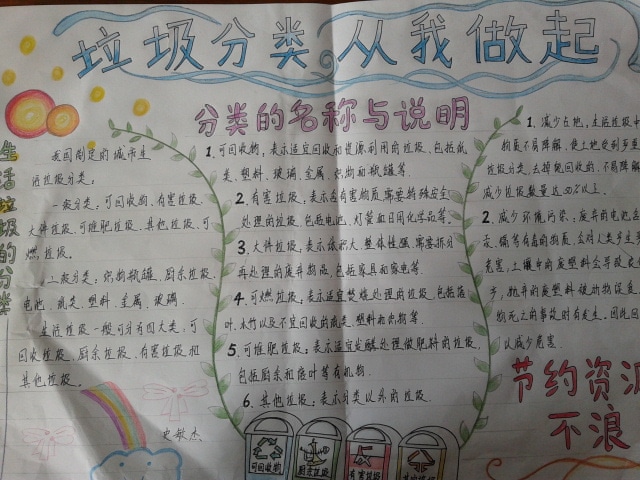 垃圾分类 从我做起
生活垃圾的分类
我国制定的城市生
活垃圾分类：
一级分类：可回收物、有害垃圾、
大件垃圾、可堆肥垃圾、其他垃圾、可
燃垃圾。
二级分类：织物、瓶罐、厨余垃圾、
电池、纸类、塑料、金属、玻璃.
生活垃圾一般可分为四大类：可
回收垃圾、厨余垃圾、有害垃圾和
其他垃圾。
史敏杰
分类的名称与说明
1. 可回收物，表示适宜回收和资源利用的垃圾，包括纸
类、塑料、玻璃、金属、织物和瓶罐等.
2. 有害垃圾：表示含有害物质，需要特殊安全
处理的垃圾，包括电池、灯管和日用化学品等。
3. 大件垃圾：表示体积大、整体性强，需要拆分
再处理的废弃物品，包括家具和家电等.
4. 可燃垃圾：表示适宜焚烧处理的垃圾，包括落
叶、木竹以及不宜回收的纸类、塑料和织物等.
5. 可堆肥垃圾：表示适宜发酵处理做肥料的垃圾，
包括厨余和落叶等有机物.
6. 其他垃圾：表示分类以外的垃圾.
可回收物
厨余垃圾
有害垃圾
其他垃圾
1. 减少占地，生活垃圾中
物质不易降解，使土地受到严重
垃圾分类，去掉能回收的、不易降解
减少垃圾数量达50%以上.
2. 减少环境污染：废弃的电池含
汞、镉等有毒的物质，会对人类产生
危害，土壤中的废塑料会导致农
，抛弃的废塑料被动物误食
物死亡的事故时有发生。因此回
以减少危害.
节约资源
不浪